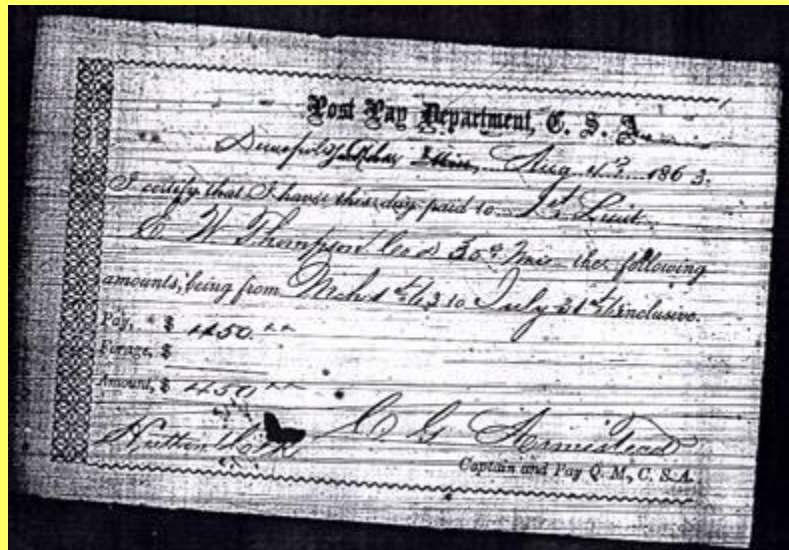 Post Pay Department, C. S. A.
Aug 1863.
I certify that I have this day paid to 1st Lieut
E. W. Thompson Co 35th Miss the following
amounts, being from Mch 1st 63 to July 31st inclusive.
Pay, $ 450.
Forage, $
Amount, $ 450
C G Armistead
Captain and Pay Q. M., C. S. A.